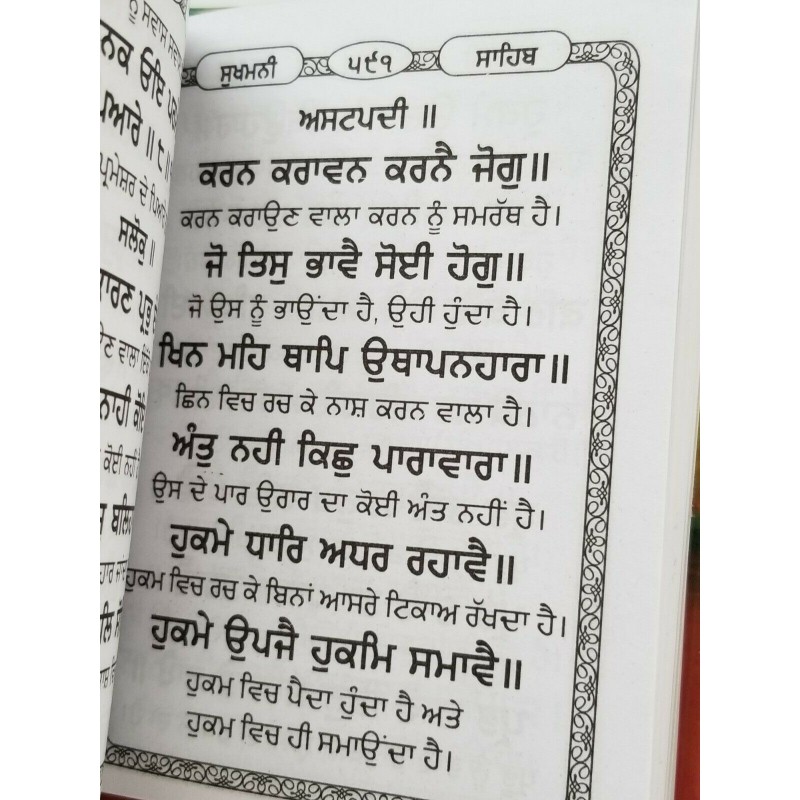 ਨੂੰ ਸਵਾਸ ਸਵਾਸ
ਨਕ ਓਇ
ਪਿਆਰੇ ॥ ੮ ॥
ਪ੍ਰਮੇਸ਼ਰ ਦੇ ਪਿਆਰੇ
ਸਲੋਕੁ ॥
ਕਾਰਣ ਪ੍ਰਭੁ
ਵਾਲਾ
ਨਾਹੀ ਕੋਇ
ਕੋਈ ਨਹੀਂ
ਸੁਖਮਨੀ ੫੯੧ ਸਾਹਿਬ
ਅਸਟਪਦੀ ॥
ਕਰਨ ਕਰਾਵਨ ਕਰਨੈ ਜੋਗੁ॥
ਕਰਨ ਕਰਾਉਣ ਵਾਲਾ ਕਰਨ ਨੂੰ ਸਮਰੱਥ ਹੈ।
ਜੋ ਤਿਸੁ ਭਾਵੈ ਸੋਈ ਹੋਗੁ॥
ਜੋ ਉਸ ਨੂੰ ਭਾਉਂਦਾ ਹੈ, ਉਹੀ ਹੁੰਦਾ ਹੈ।
ਖਿਨ ਮਹਿ ਥਾਪਿ ਉਥਾਪਨਹਾਰਾ॥
ਛਿਨ ਵਿਚ ਰਚ ਕੇ ਨਾਸ਼ ਕਰਨ ਵਾਲਾ ਹੈ।
ਅੰਤੁ ਨਹੀ ਕਿਛੁ ਪਾਰਾਵਾਰਾ॥
ਉਸ ਦੇ ਪਾਰ ਉਰਾਰ ਦਾ ਕੋਈ ਅੰਤ ਨਹੀਂ ਹੈ।
ਹੁਕਮੇ ਧਾਰਿ ਅਧਰ ਰਹਾਵੈ॥
ਹੁਕਮ ਵਿਚ ਰਚ ਕੇ ਬਿਨਾਂ ਆਸਰੇ ਟਿਕਾਅ ਰੱਖਦਾ ਹੈ।
ਹੁਕਮੇ ਉਪਜੈ ਹੁਕਮਿ ਸਮਾਵੈ॥
ਹੁਕਮ ਵਿਚ ਪੈਦਾ ਹੁੰਦਾ ਹੈ ਅਤੇ
ਹੁਕਮ ਵਿਚ ਹੀ ਸਮਾਉਂਦਾ ਹੈ।